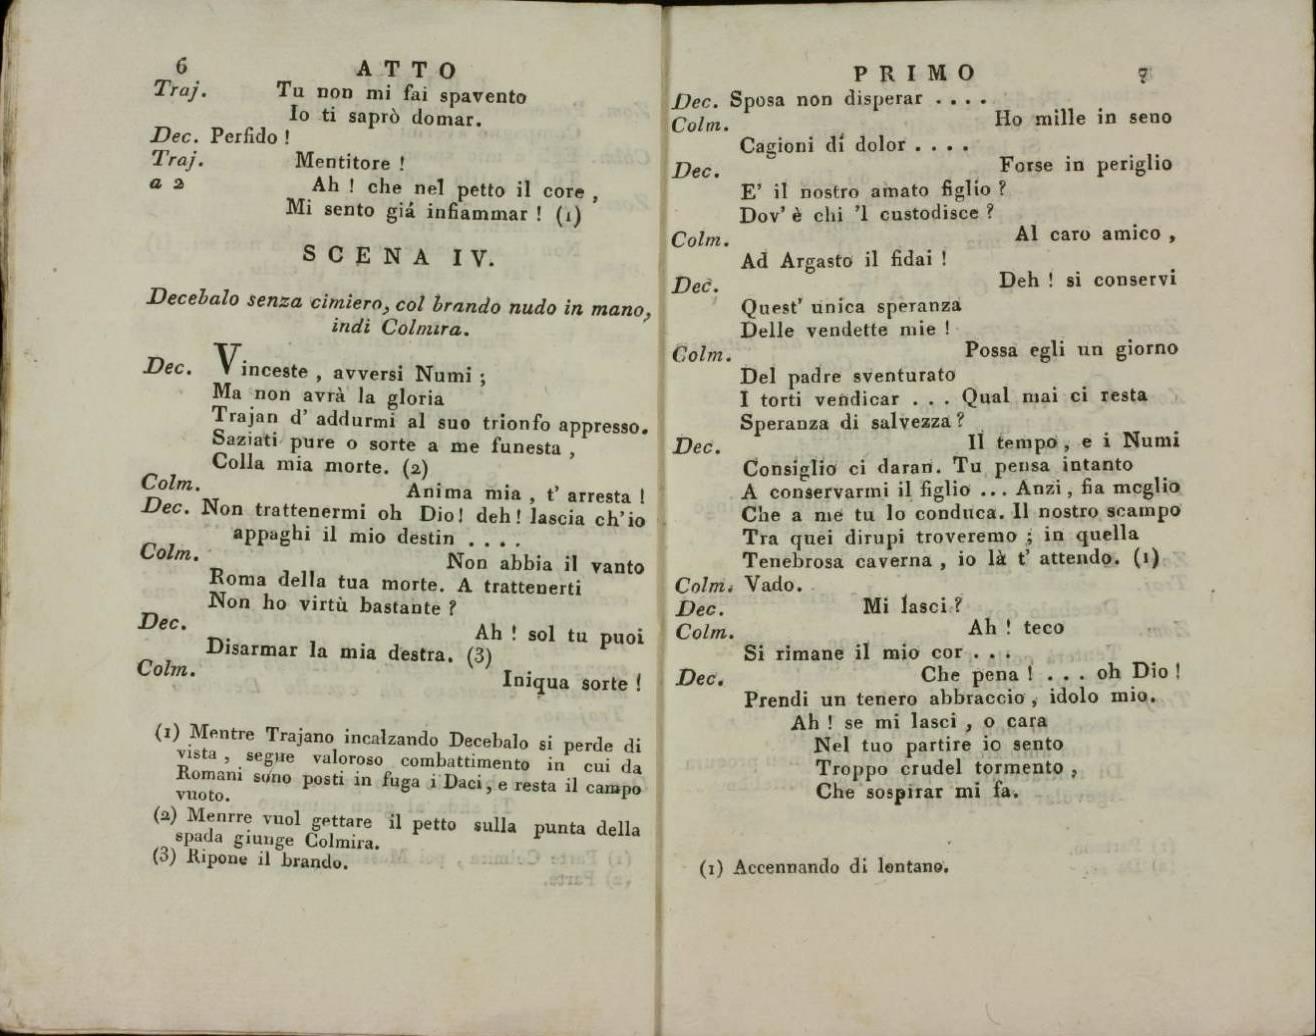 6 ATTO
Traj. Tu non mi fai spavento
Io ti saprò domar.
Dec. Perfido !
Traj. Mentitore !
a 2 Ah ! che nel petto il core ,
Mi sento giá infiammar ! (1)
SCENA IV.
Decebalo senza cimiero, col brando nudo in mano,
indi Colmira.
Dec. Vinceste , avversi Numi ;
Ma non avrà la gloria
Trajan d' addurmi al suo trionfo appresso.
Saziati pure o sorte a me funesta ,
Colla mia morte. (2)
Colm. Anima mia , t' arresta !
Dec. Non trattenermi oh Dio! deh! lascia ch'io
appaghi il mio destin ....
Colm. Non abbia il vanto
Roma della tua morte. A trattenerti
Non ho virtù bastante ?
Dec. Ah ! sol tu puoi
Disarmar la mia destra. (3)
Colm. Iniqua sorte !
(1) Mentre Trajano incalzando Decebalo si perde di
vista , segue valoroso combattimento in cui da
Romani sono posti in fuga i Daci, e resta il campo
vuoto.
(2) Menrre vuol gettare il petto sulla punta della
spada giunge Colmira.
(3) Ripone il brando.
PRIMO 7
Dec. Sposa non disperar ....
Colm. Ho mille in seno
Cagioni dí dolor ....
Dec. Forse in periglio
E' il nostro amato figlio ?
Dov' è chi 'l custodisce ?
Colm. Al caro amico ,
Ad Argasto il fidai !
Dec. Deh ! si conservi
Quest' unica speranza
Delle vendette mie !
Colm. Possa egli un giorno
Del padre sventurato
I torti vendicar ... Qual mai ci resta
Speranza di salvezza ?
Dec. Il tempo , e i Numi
Consiglio ci daran. Tu pensa intanto
A conservarmi il figlio ... Anzi, fia meglio
Che a me tu lo conduca. Il nostro scampo
Tra quei dirupi troveremo ; in quella
Tenebrosa caverna , io là t' attendo. (1)
Colm. Vado.
Dec. Mi lasci ?
Colm. Ah ! teco
Si rimane il mio cor ...
Dec. Che pena ! ... oh Dio !
Prendi un tenero abbraccio , idolo mio.
Ah ! se mi lasci , o cara
Nel tuo partire io sento
Troppo crudel tormento ,
Che sospirar mi fa.
(1) Accennando di lontano.